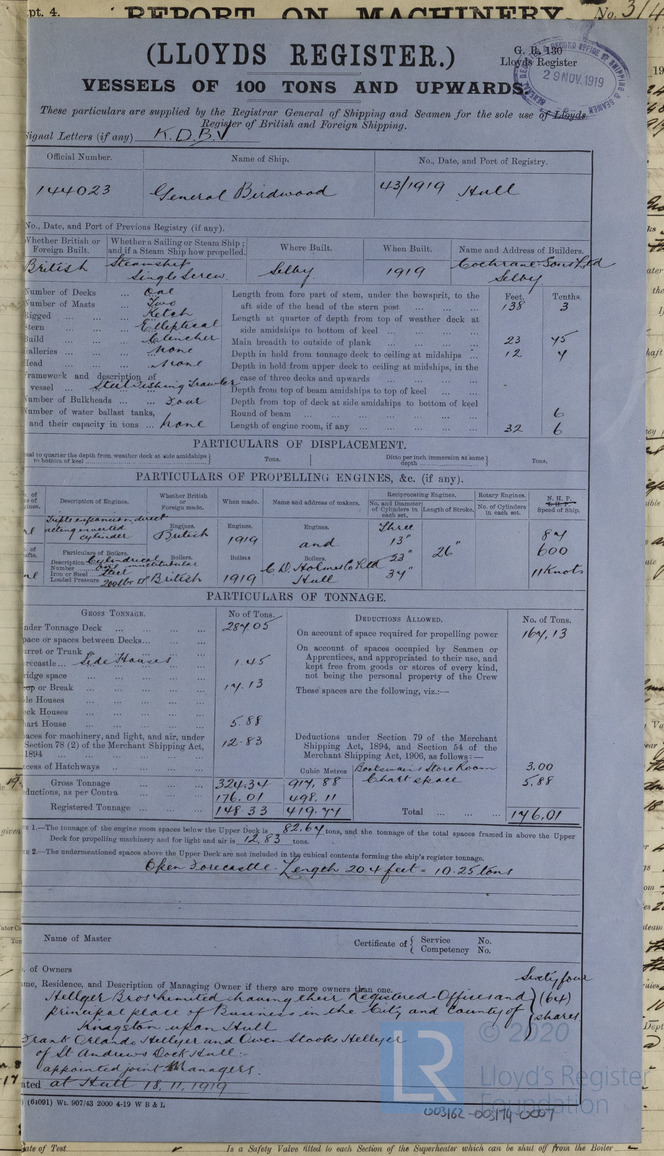 pt. 4. REPORT ON MACHINERY. No. 314
(LLOYDS REGISTER.)
G. R. 130
Lloyds Register
29 NOV. 1919
VESSELS OF 100 TONS AND UPWARDS.
These particulars are supplied by the Registrar General of Shipping and Seamen for the sole use of Lloyds
Register of British and Foreign Shipping.
Signal Letters (if any) K.D.B.V
Official Number. Name of Ship. No., Date, and Port of Registry.
144023 General Birdwood 43/1919 Hull
No., Date, and Port of Previous Registry (if any).
Whether British or Foreign Built. Whether a Sailing or Steam Ship; and if a Steam Ship how propelled. Where Built. When Built. Name and Address of Builders.
British Steamship Single Screw Selby 1919 Cochrane Sons Ltd Selby
Number of Decks ... One
Number of Masts ... Two
Rigged ... Ketch
Stern ... Elleptical
Build ... Clencher
Galleries ... None
Head ... None
Framework and description of vessel ... Steel Fishing Trawler
Number of Bulkheads ... Four
Number of water ballast tanks, and their capacity in tons ... None
Feet. Tenths.
Length from fore part of stem, under the bowsprit, to the aft side of the head of the stern post ... 138 3
Length at quarter of depth from top of weather deck at side amidships to bottom of keel
Main breadth to outside of plank ... 23 45
Depth in hold from tonnage deck to ceiling at midships 12 4
Depth in hold from upper deck to ceiling at midships, in the case of three decks and upwards
Depth from top of beam amidships to top of keel
Depth from top of deck at side amidships to bottom of keel
Round of beam ... 6
Length of engine room, if any ... 32 6
PARTICULARS OF DISPLACEMENT.
to quarter the depth from weather deck at side amidships to bottom of keel Tons. Ditto per inch immersion at same depth Tons.
PARTICULARS OF PROPELLING ENGINES, &c. (if any).
Description of Engines. Whether British or Foreign made. When made. Name and address of makers. Reciprocating Engines. Rotary Engines. N. H. P.
No. and Diameter of Cylinders in each set. Length of Stroke. No. of Cylinders in each set. Speed of Ship.
Triple expansion direct acting inverted cylinder Engines. British Engines. 1919 Engines. Three 13" 87
and 23" 26" 600
Particulars of Boilers.
Description Cylindrical multitubular
Number One
Iron or Steel Steel
Loaded Pressure 200lbs Boilers. British Boilers 1919 Boilers. C.D. Holmes & Co Ltd Hull 37" 11 Knots
PARTICULARS OF TONNAGE.
GROSS TONNAGE. No of Tons. DEDUCTIONS ALLOWED. No. of Tons.
Under Tonnage Deck ... 287.05
On account of space required for propelling power 167.13
Space or spaces between Decks...
Turret or Trunk
Forecastle... Side Houses 1.45
Bridge space
Poop or Break ... 17.13
Side Houses
Deck Houses
Chart House 5.88
Spaces for machinery, and light, and air, under Section 78 (2) of the Merchant Shipping Act, 1894 12.83
Excess of Hatchways
On account of spaces occupied by Seamen or Apprentices, and appropriated to their use, and kept free from goods or stores of every kind, not being the personal property of the Crew
These spaces are the following, viz.:—
Deductions under Section 79 of the Merchant Shipping Act, 1894, and Section 54 of the Merchant Shipping Act, 1906, as follows:—
Cubic Metres Boatswain's Store Room 3.00
Chart space 5.88
Gross Tonnage ... 324.34 917.88
Deductions, as per Contra 176.01 498.11
Registered Tonnage ... 148.33 419.77 Total ... 176.01
1.—The tonnage of the engine room spaces below the Upper Deck is 82.67 tons, and the tonnage of the total spaces framed in above the Upper
Deck for propelling machinery and for light and air is 12.83 tons.
2.—The undermentioned spaces above the Upper Deck are not included in the cubical contents forming the ship's register tonnage.
Open Forecastle. Length 20.4 feet = 10.25 tons
Name of Master Certificate of Service No. Competency No.
of Owners
Name, Residence, and Description of Managing Owner if there are more owners than one. Sixty four
Hellyer Bros Limited having their Registered Offices and (64)
principal place of Business in the City and County of shares
Kingston upon Hull
Frank Orlando Hellyer and Owen Stooks Hellyer
of St Andrews Dock Hull:-
appointed joint Managers.
Dated at Hull 18.11.1919
(64091) Wt. 907/43 2000 4-19 W B & L
© 2020
LR Lloyd's Register Foundation
003162-003174-0007
ate of Test Is a Safety Valve fitted to each Section of the Superheater which can be shut off from the Boiler